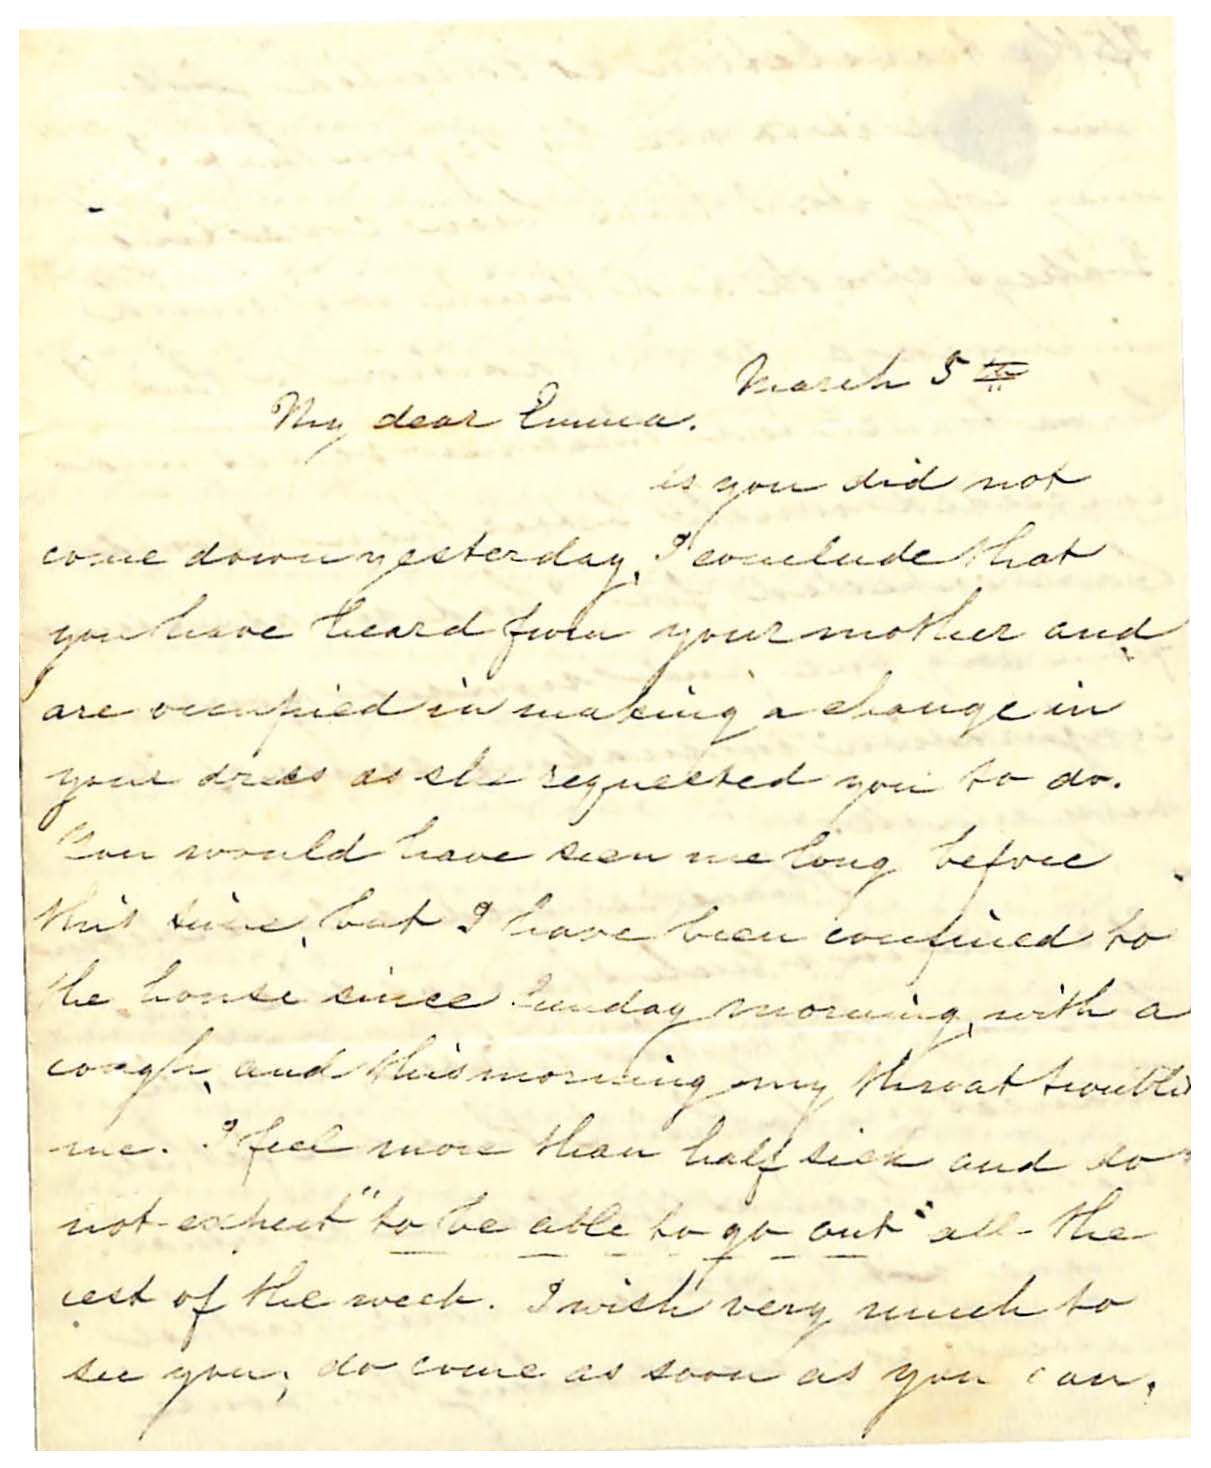 March 5th
My dear Emma.
As you did not
come down yesterday, I conclude that
you have heard from your mother and
are occupied in making a change in
your dress as she requested you to do.
You would have seen me long before
this time, but I have been confined to
the house since Sunday morning, with a
cough, and this morning my throat troubles
me. I feel more than half sick and do
not expect "to be able to go out" all the
rest of the week. I wish very much to
see you; do come as soon as you can.